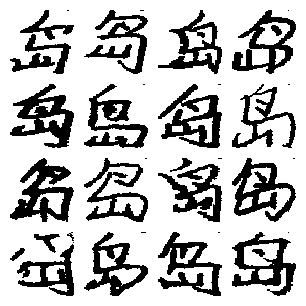 岛岛岛岛
岛岛岛岛
岛岛岛岛
岛岛岛岛